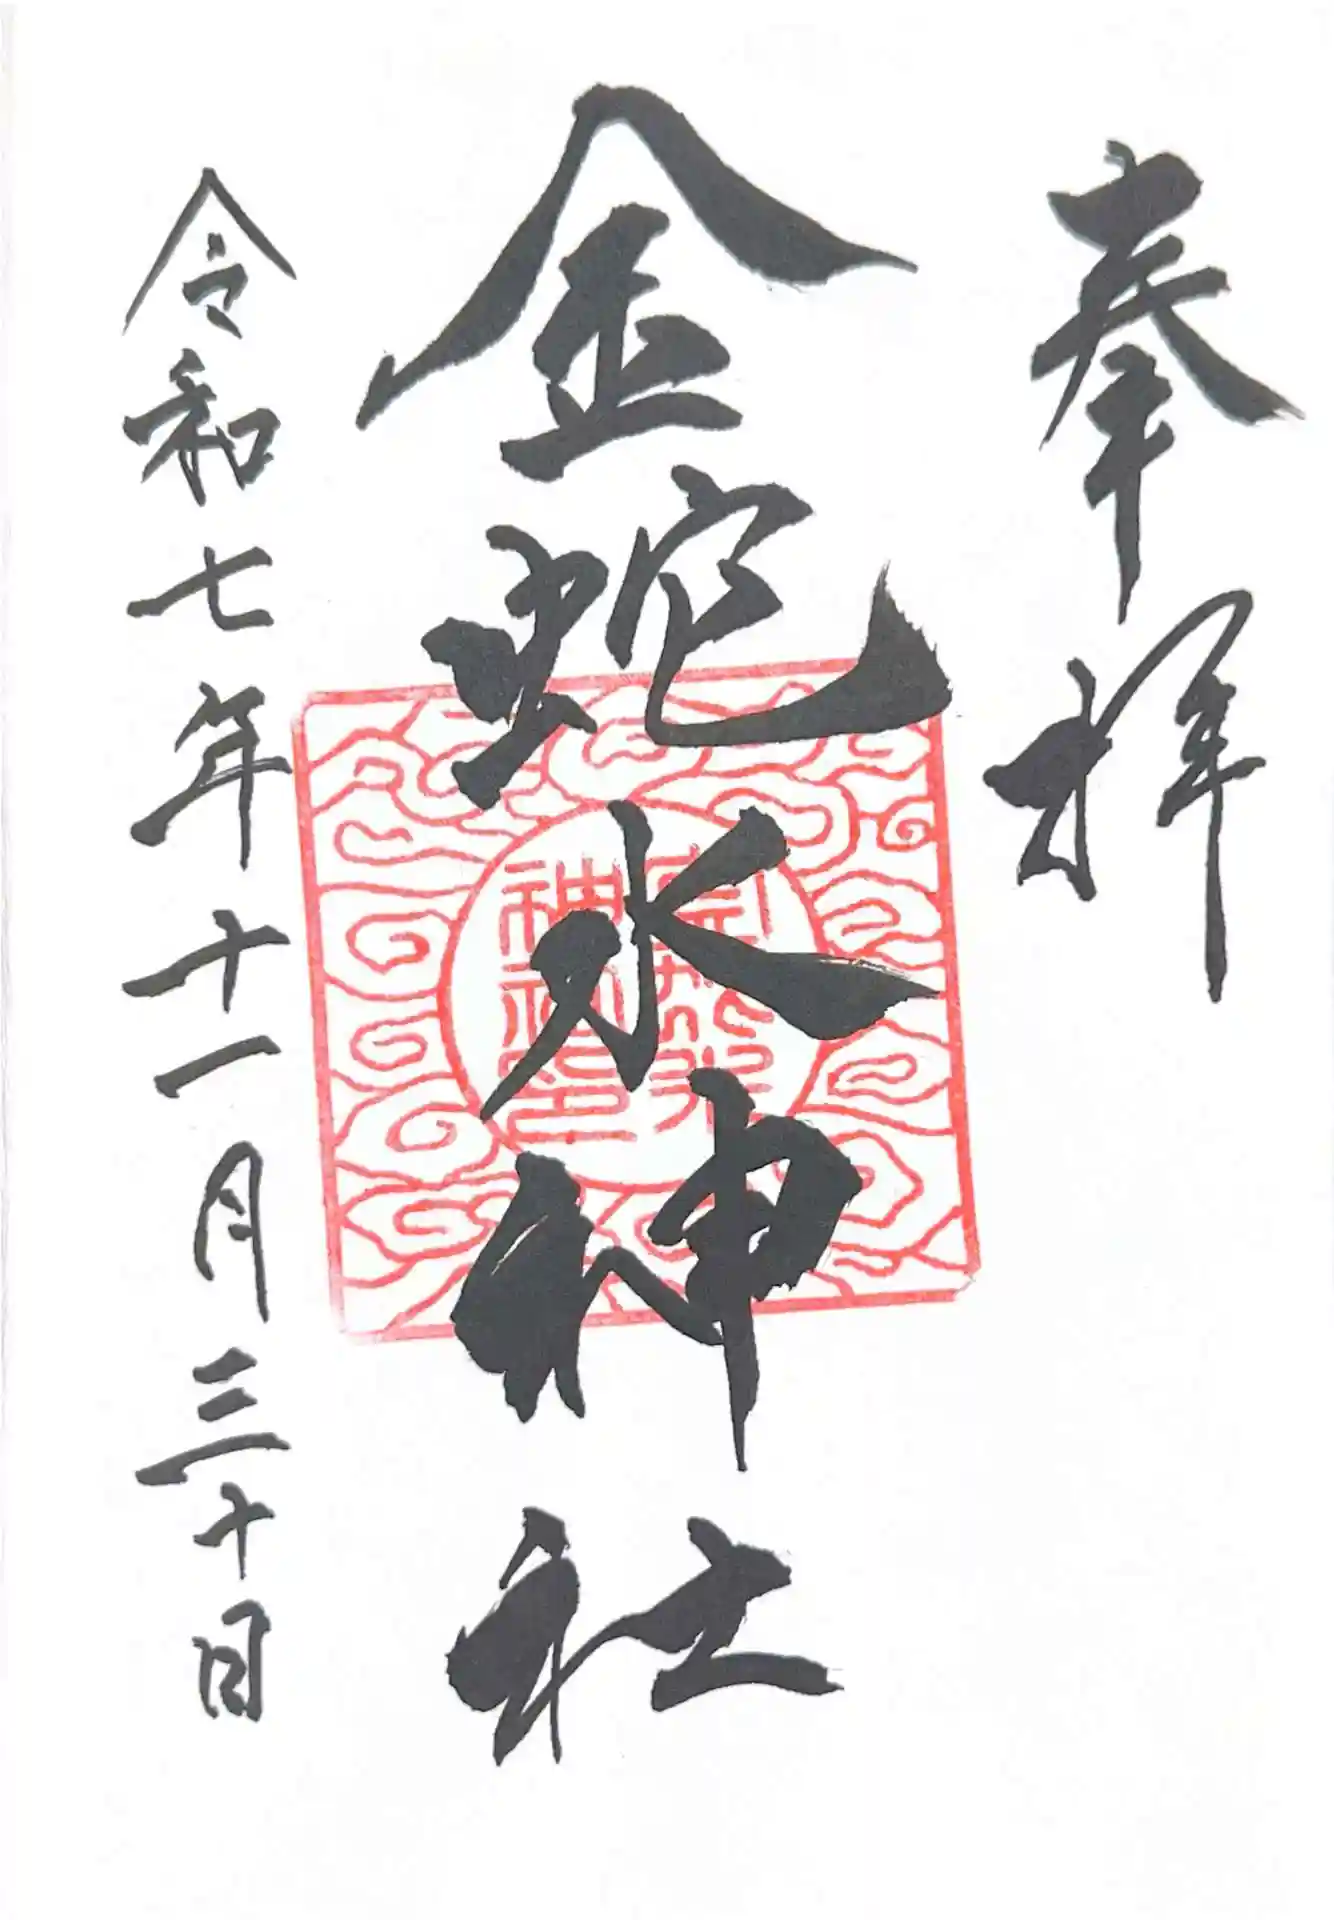 奉拝
金蛇水神社
令和七年十一月三十日